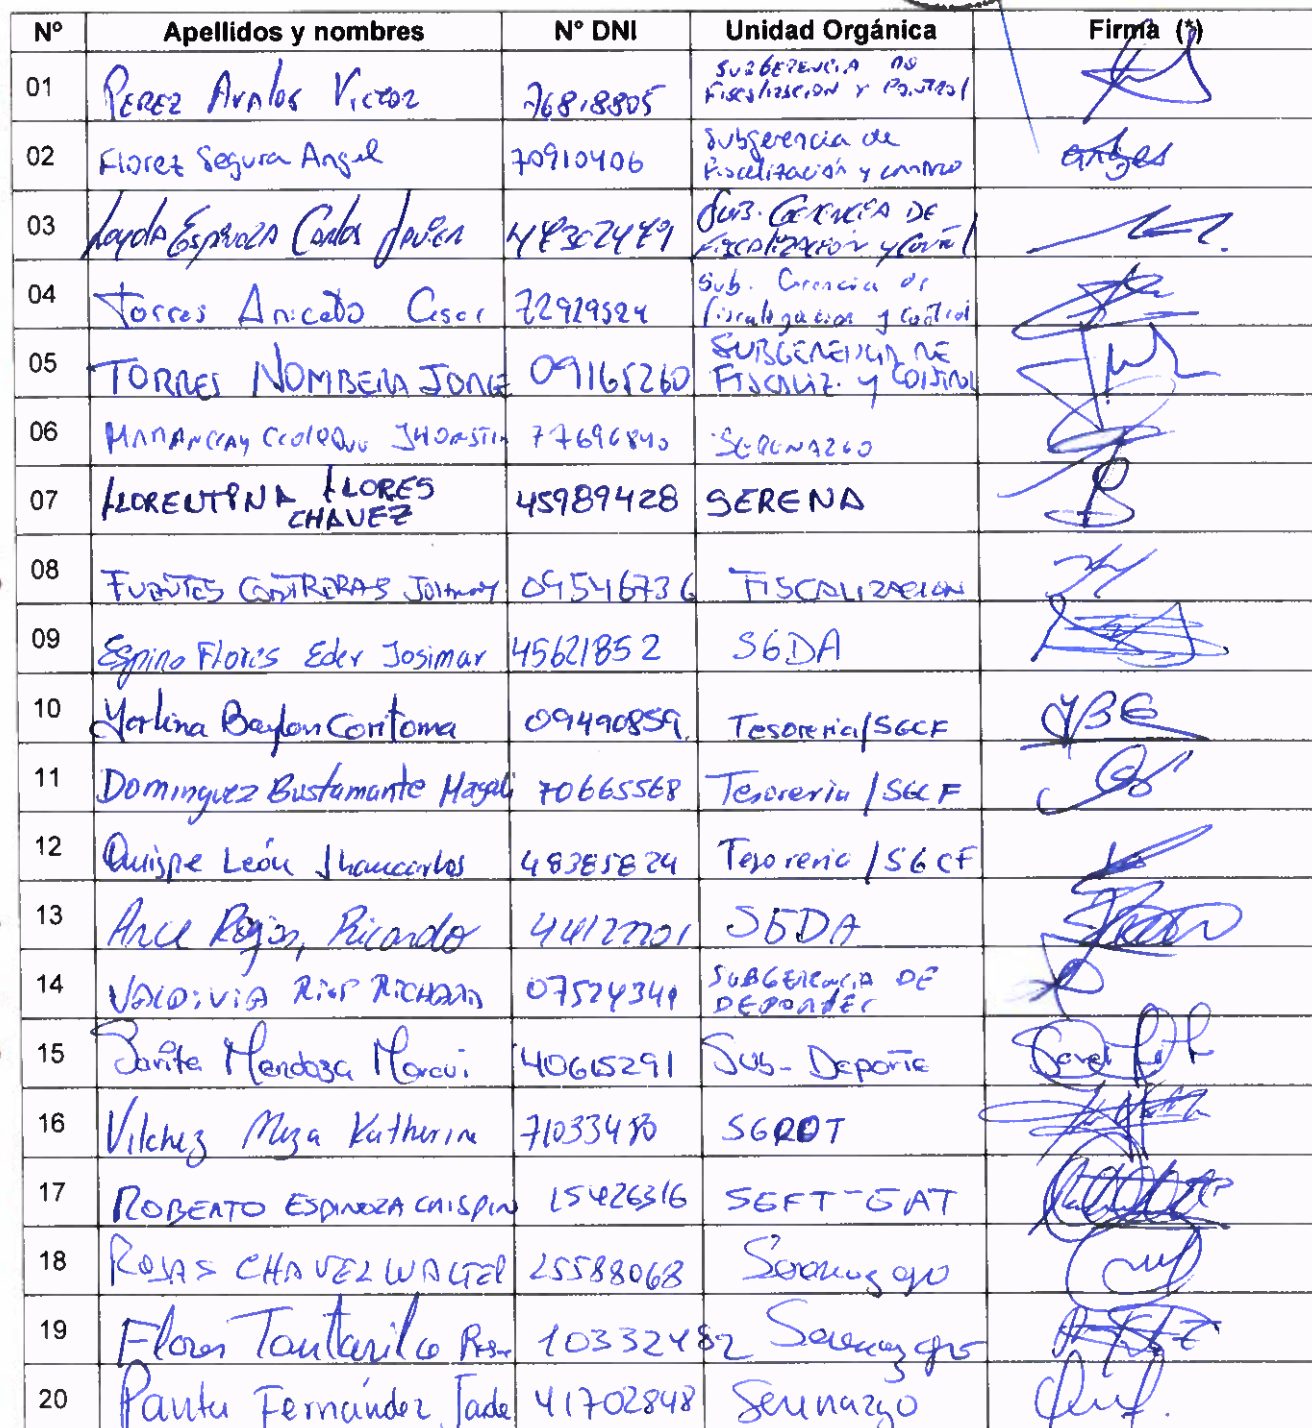 Nº Apellidos y nombres N° DNI Unidad Orgánica Firma (*)
01 PEREZ AVALOS VICTOR 76818805 SUBGERENCIA DE
FISCALIZACION Y CONTROL
02 Florez Segura Angel 70910406 Subgerencia de
Fiscalización y control
03 Loyola ESPINOZA Carlos JAVIER SUB. GERENCIA DE
FISCALIZACIÓN y Control
04 Torres Aniceto Cesar 72929524 Sub. Gerencia de
fiscalizacion y control
05 TORRES JORGE 09165260 SUBGERENCIA DE
FISCALIZ. y CONTROL
06 77696840 SERENAZGO
07 FLORENTINA FLORES
CHAVEZ 45989428 SERENA
08 FUENTES CONTRERAS Johnny 09546736 FISCALIZACION
09 Espino Flores Eder Josimar 45621852 SGDA
10 Yorlina Baylon Coritoma 09490859. Tesoreria/SGCF
11 Dominguez Bustamante Magali 70665568 Tesoreria /SGCF
12 Quispe León Jhancarlos 48385824 Tesoreria /SGCF
13 Arce Rojas, Ricardo SGDA
14 VALDIVIA RIOS RICHARD 07524349 SUBGERENCIA DE
DEPORTES
15 Sarita Mendoza Moravi 40615291 Sub-Deporte
16 Vilchez Meza Katherin 71033480 SGROT
17 ROBERTO ESPINOZA CRISPIN 15426316 SGFT-GAT
18 ROJAS CHAVEZ WALTER 25588068 Serenazgo
19 Flores Tantarico 10332482 Serenazgo
20 Panta Fernández Jade 41702848 Serenazgo